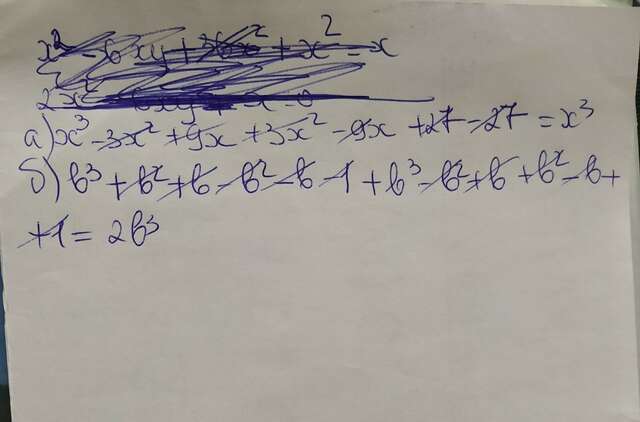 x² - 6xy + 36x² + x² = x
а) x³ - 3x² + 9x + 3x² - 9x + 27 - 27 = x³
б) b³ + b² + b - b² - b - 1 + b³ - b² + b + b² - b +
+ 1 = 2b³